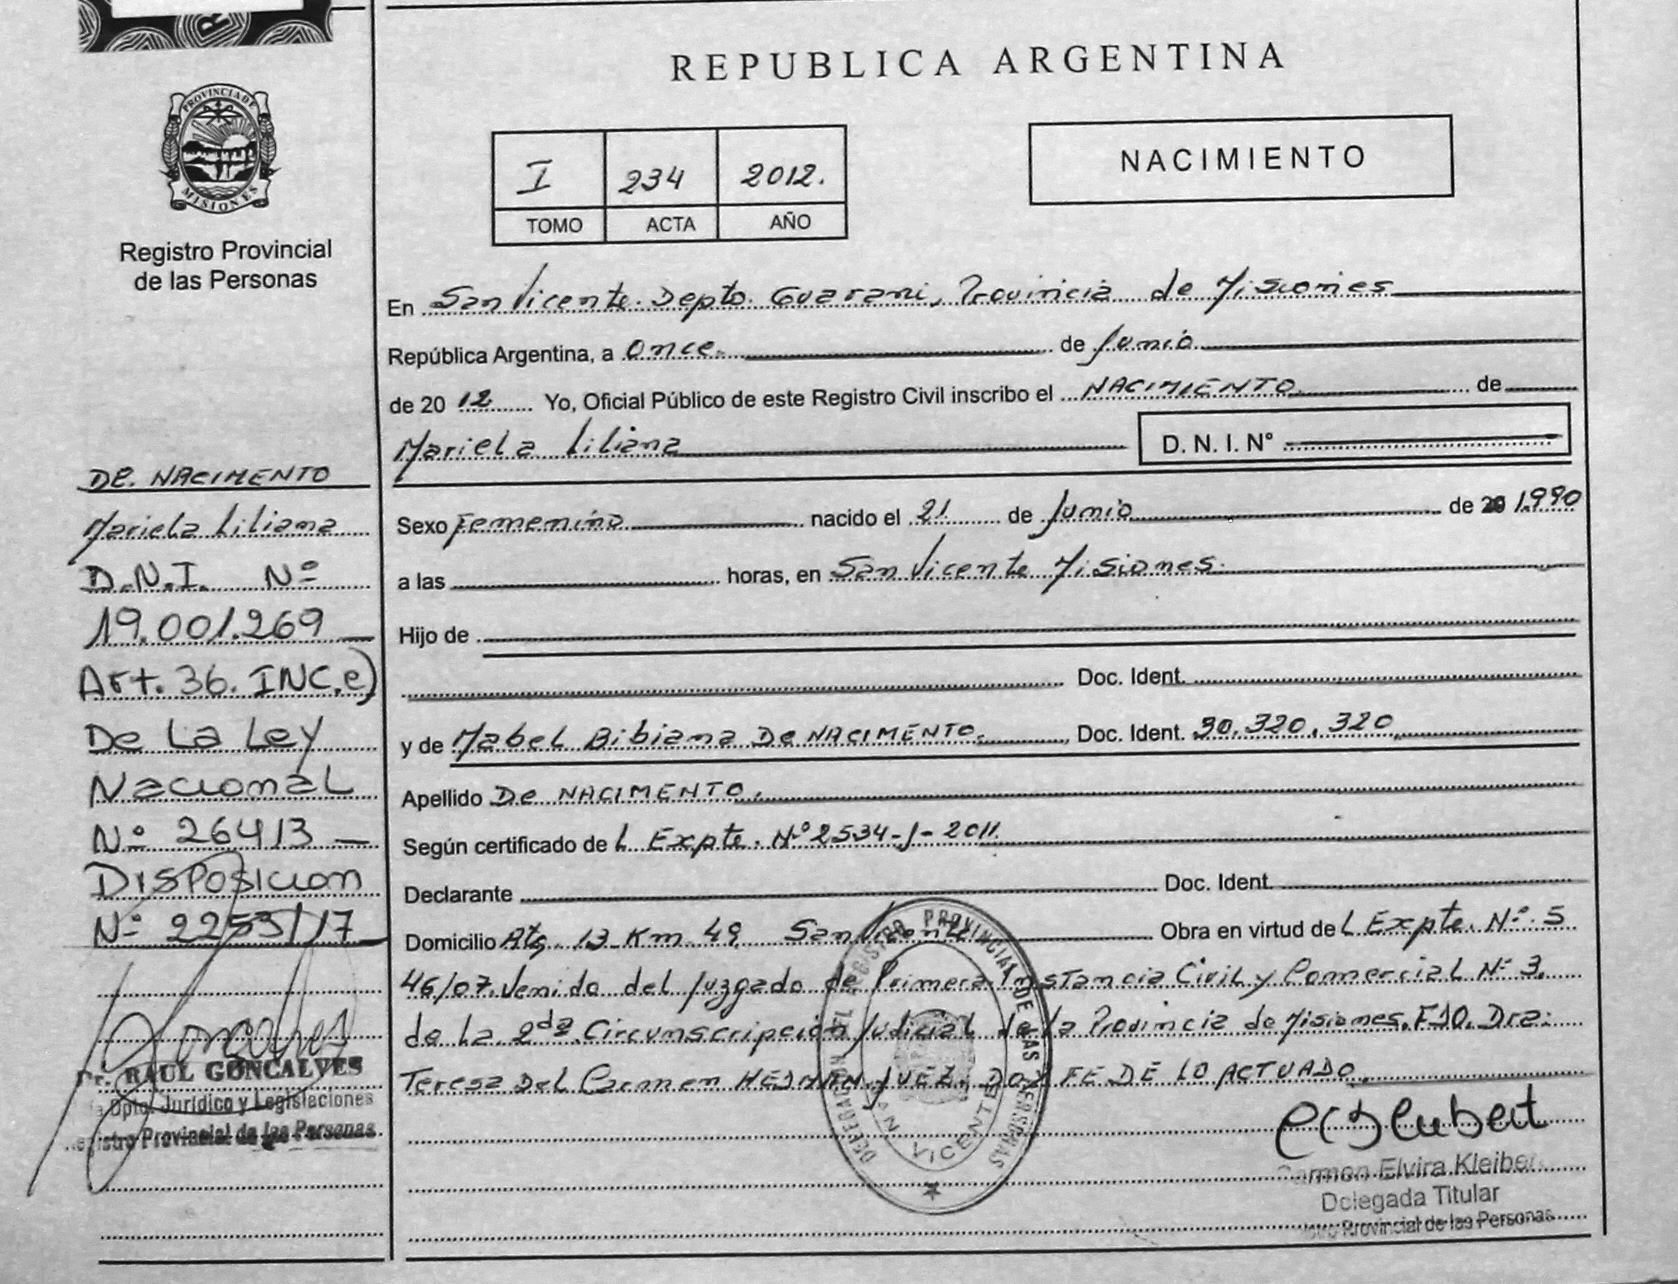 REPUBLICA ARGENTINA
PROVINCIA DE
MISIONES
Registro Provincial
de las Personas
I 234 2012.
TOMO ACTA AÑO
NACIMIENTO
En San Vicente. Depto. Guarani, Provincia de Misiones
República Argentina, a Once. de Junio
de 20 12 Yo, Oficial Público de este Registro Civil inscribo el NACIMIENTO de
Mariela Liliana D. N. I. N°
Sexo Femenino nacido el 21 de Junio de 20 1.990
a las horas, en San Vicente Misiones.
Hijo de
Doc. Ident.
y de Mabel Bibiana De NACIMENTO. Doc. Ident. 30.320.320
Apellido De NACIMENTO.
Según certificado de L Expte. Nº 2534-J-2011.
Declarante Doc. Ident.
Domicilio Km 49 San Vicente Obra en virtud de L Expte. Nº 5
46/07. Venido del Juzgado de Primera Instancia Civil y Comercial Nº 3.
de La 2da. Circunscripción Judicial de la Provincia de Misiones. Dra:
Teresa Del Carmen JUEZ. DOY FE DE LO ACTUADO.
De. NACIMENTO
Mariela Liliana
D.N.I. Nº
19.001.269
Art. 36. INC.e)
De La Ley
Nacional
Nº 26413
DISPOSICION
Nº 2253/17
Goncalves
Dr. RAUL GONCALVES
Dpto. Jurídico y Legislaciones
Registro Provincial de las Personas
DELEGACION DEL REGISTRO PROVINCIAL DE LAS PERSONAS
SAN VICENTE
Carmen Elvira Kleiber
Delegada Titular
Provincial de las Personas